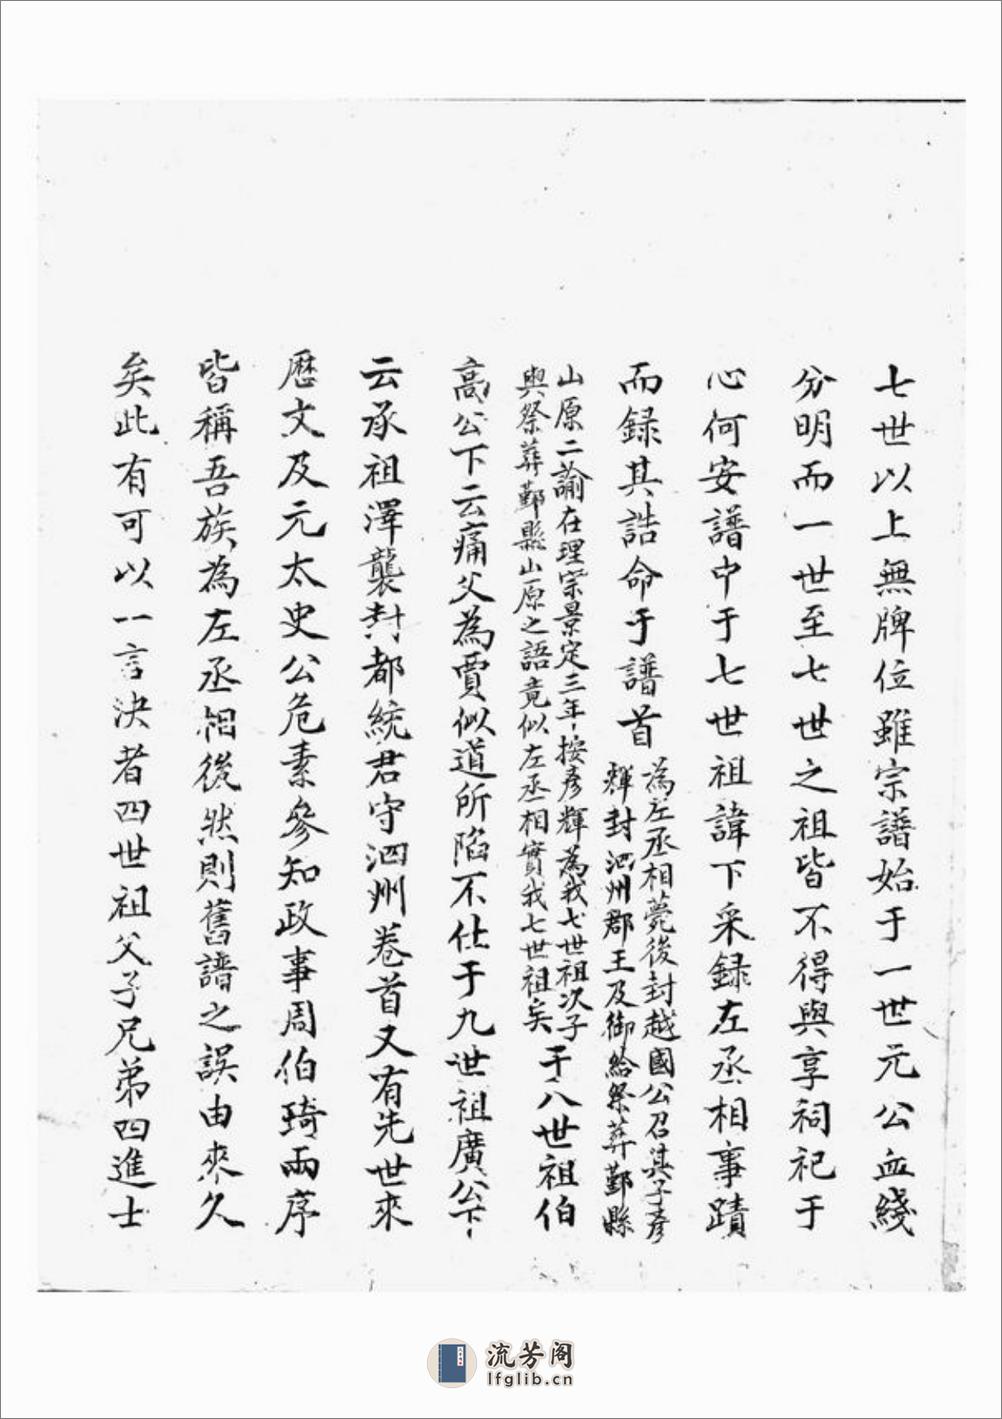 七世以上無牌位雖宗譜始于一世元公血綫
分明而一世至七世之祖皆不得與享祠祀于
心何安譜中于七世祖諱下采録左丞相事蹟
而録其誥命于譜首
為左丞相薨後封越國公召其子彥
輝封泗州郡王及御給祭葬鄞縣
山原二諭在理宗景定三年按彥輝為我七世祖次子
與祭葬鄞縣山原之語竟似左丞相實我七世祖矣
于八世祖伯
高公下云痛父為賈似道所陷不仕于九世祖廣公下
云承祖澤襲封都統君守泗州卷首又有先世來
歷文及元太史公危素參知政事周伯琦兩序
皆稱吾族為左丞相後然則舊譜之誤由來久
矣此有可以一言決者四世祖父子兄弟四進士
流芳阁
lfglib.cn